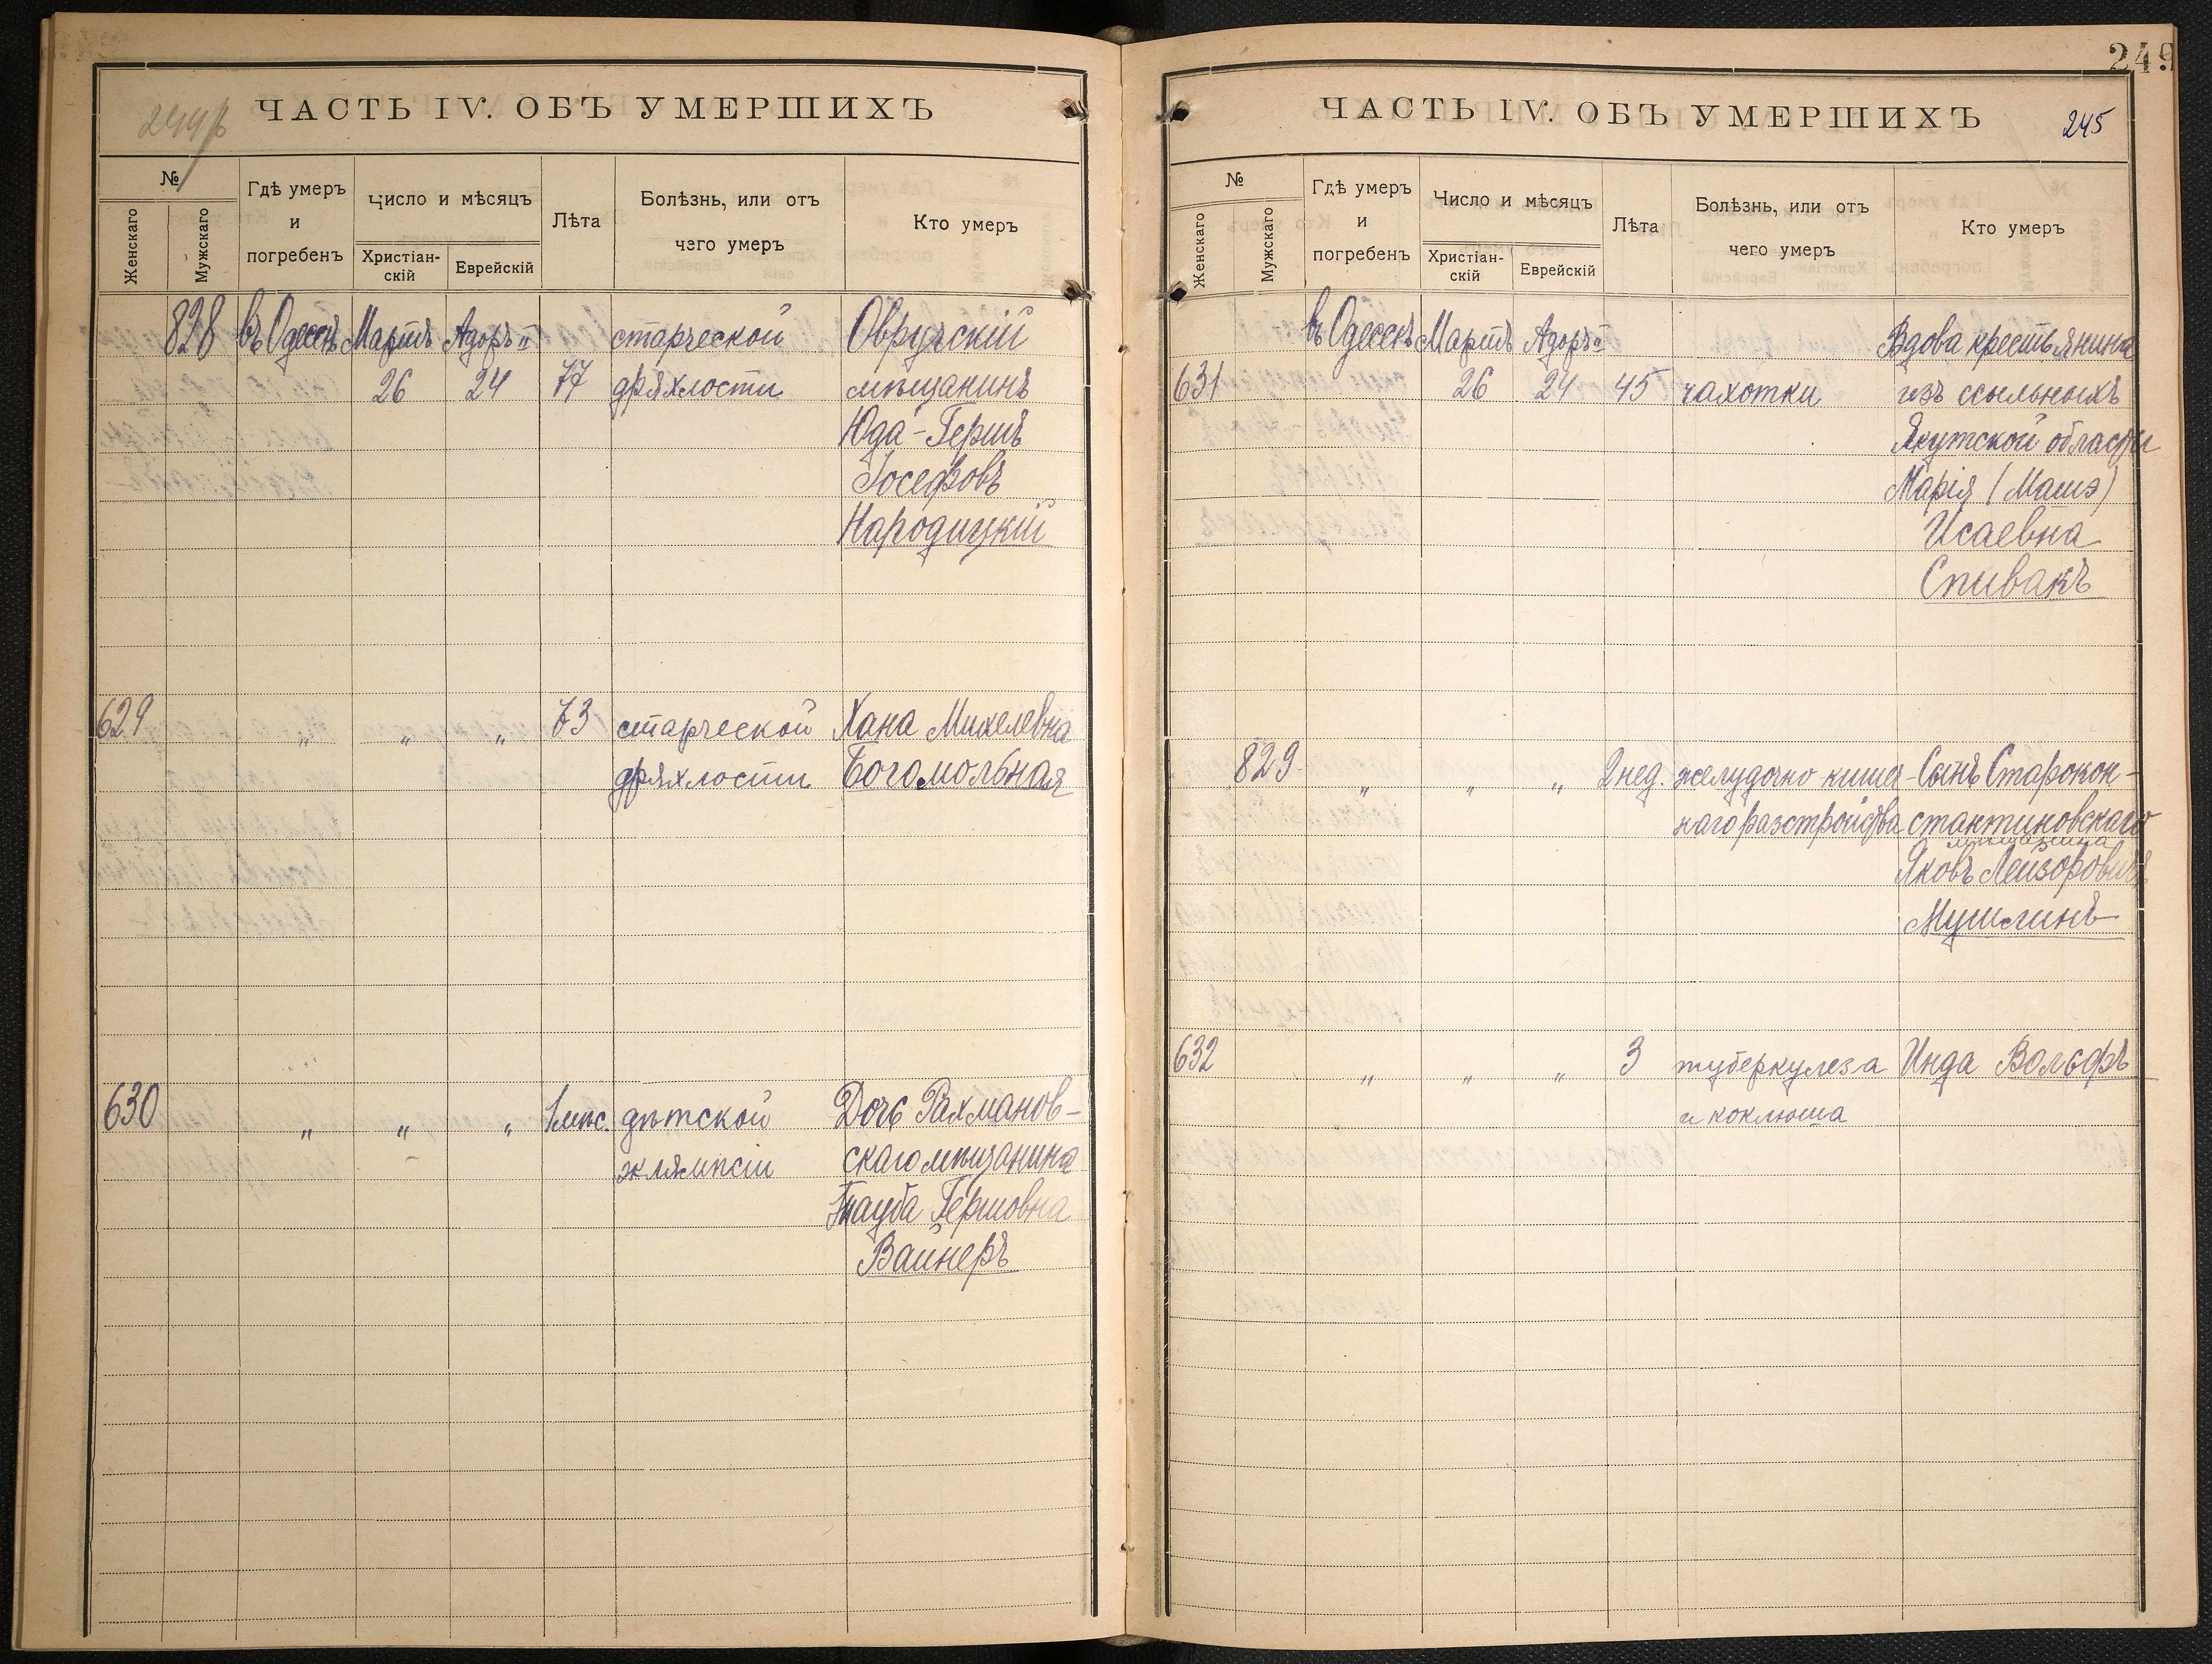 ЧАСТЬ IV. ОБЪ УМЕРШИХЪ
№
Женскаго
Мужскаго
Гдѣ умеръ
и
погребенъ
Число и мѣсяцъ
Христіан-
скій
Еврейскій
Лѣта
Болѣзнь, или отъ
чего умеръ
Кто умеръ
828 въ Одессѣ Мартъ Адоръ II старческой Овручскій
26 24 77 дряхлости мѣщанинъ
Юда-Гершъ
Іосефовъ
Народицкій
629 " " " 73 старческой Хана Михелевна
дряхлости Богомольная
630 " " " 1 мѣс. дѣтской Дочь Рахманов-
эклямпсіи скаго мѣщанина
Тауба Гершовна
Вайнеръ
249
ЧАСТЬ IV. ОБЪ УМЕРШИХЪ 245
№
Женскаго
Мужскаго
Гдѣ умеръ
и
погребенъ
Число и мѣсяцъ
Христіан-
скій
Еврейскій
Лѣта
Болѣзнь, или отъ
чего умеръ
Кто умеръ
въ Одессѣ Мартъ Адоръ II Вдова крестьянина
631 26 24 45 чахотки изъ ссыльныхъ
Якутской области
Марія (Машэ)
Исаевна
Спивакъ
829 " " " 2 нед. желудочно-кишеч- Сынъ Старокон-
наго разстройства стантиновскаго
мѣщанина
Яковъ Лейзоровичъ
Мушлинъ
632 " " " 3 туберкулеза Инда Вольфъ
и коклюша